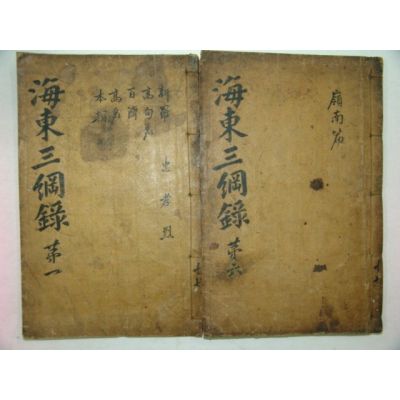 海東三綱錄 第一
新羅
高句麗
百濟
高麗
本朝
忠孝烈
海東三綱錄 第六
嶺南篇